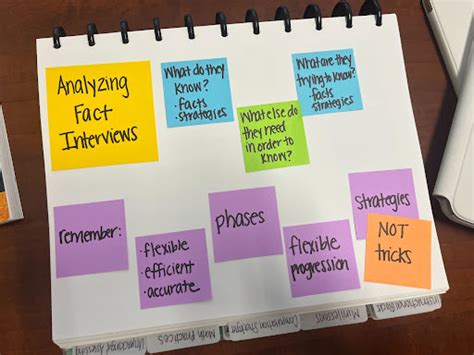 Analyzing
Fact
Interviews
What do they
know?
• facts
• strategies
What are they
trying to know?
• facts
• strategies
What else do
they need
in order to
know?
remember:
• flexible
• efficient
• accurate
phases
flexible
progression
strategies
NOT
tricks
Math Practices
Computation Strategies
Minilessons
Instructional Block